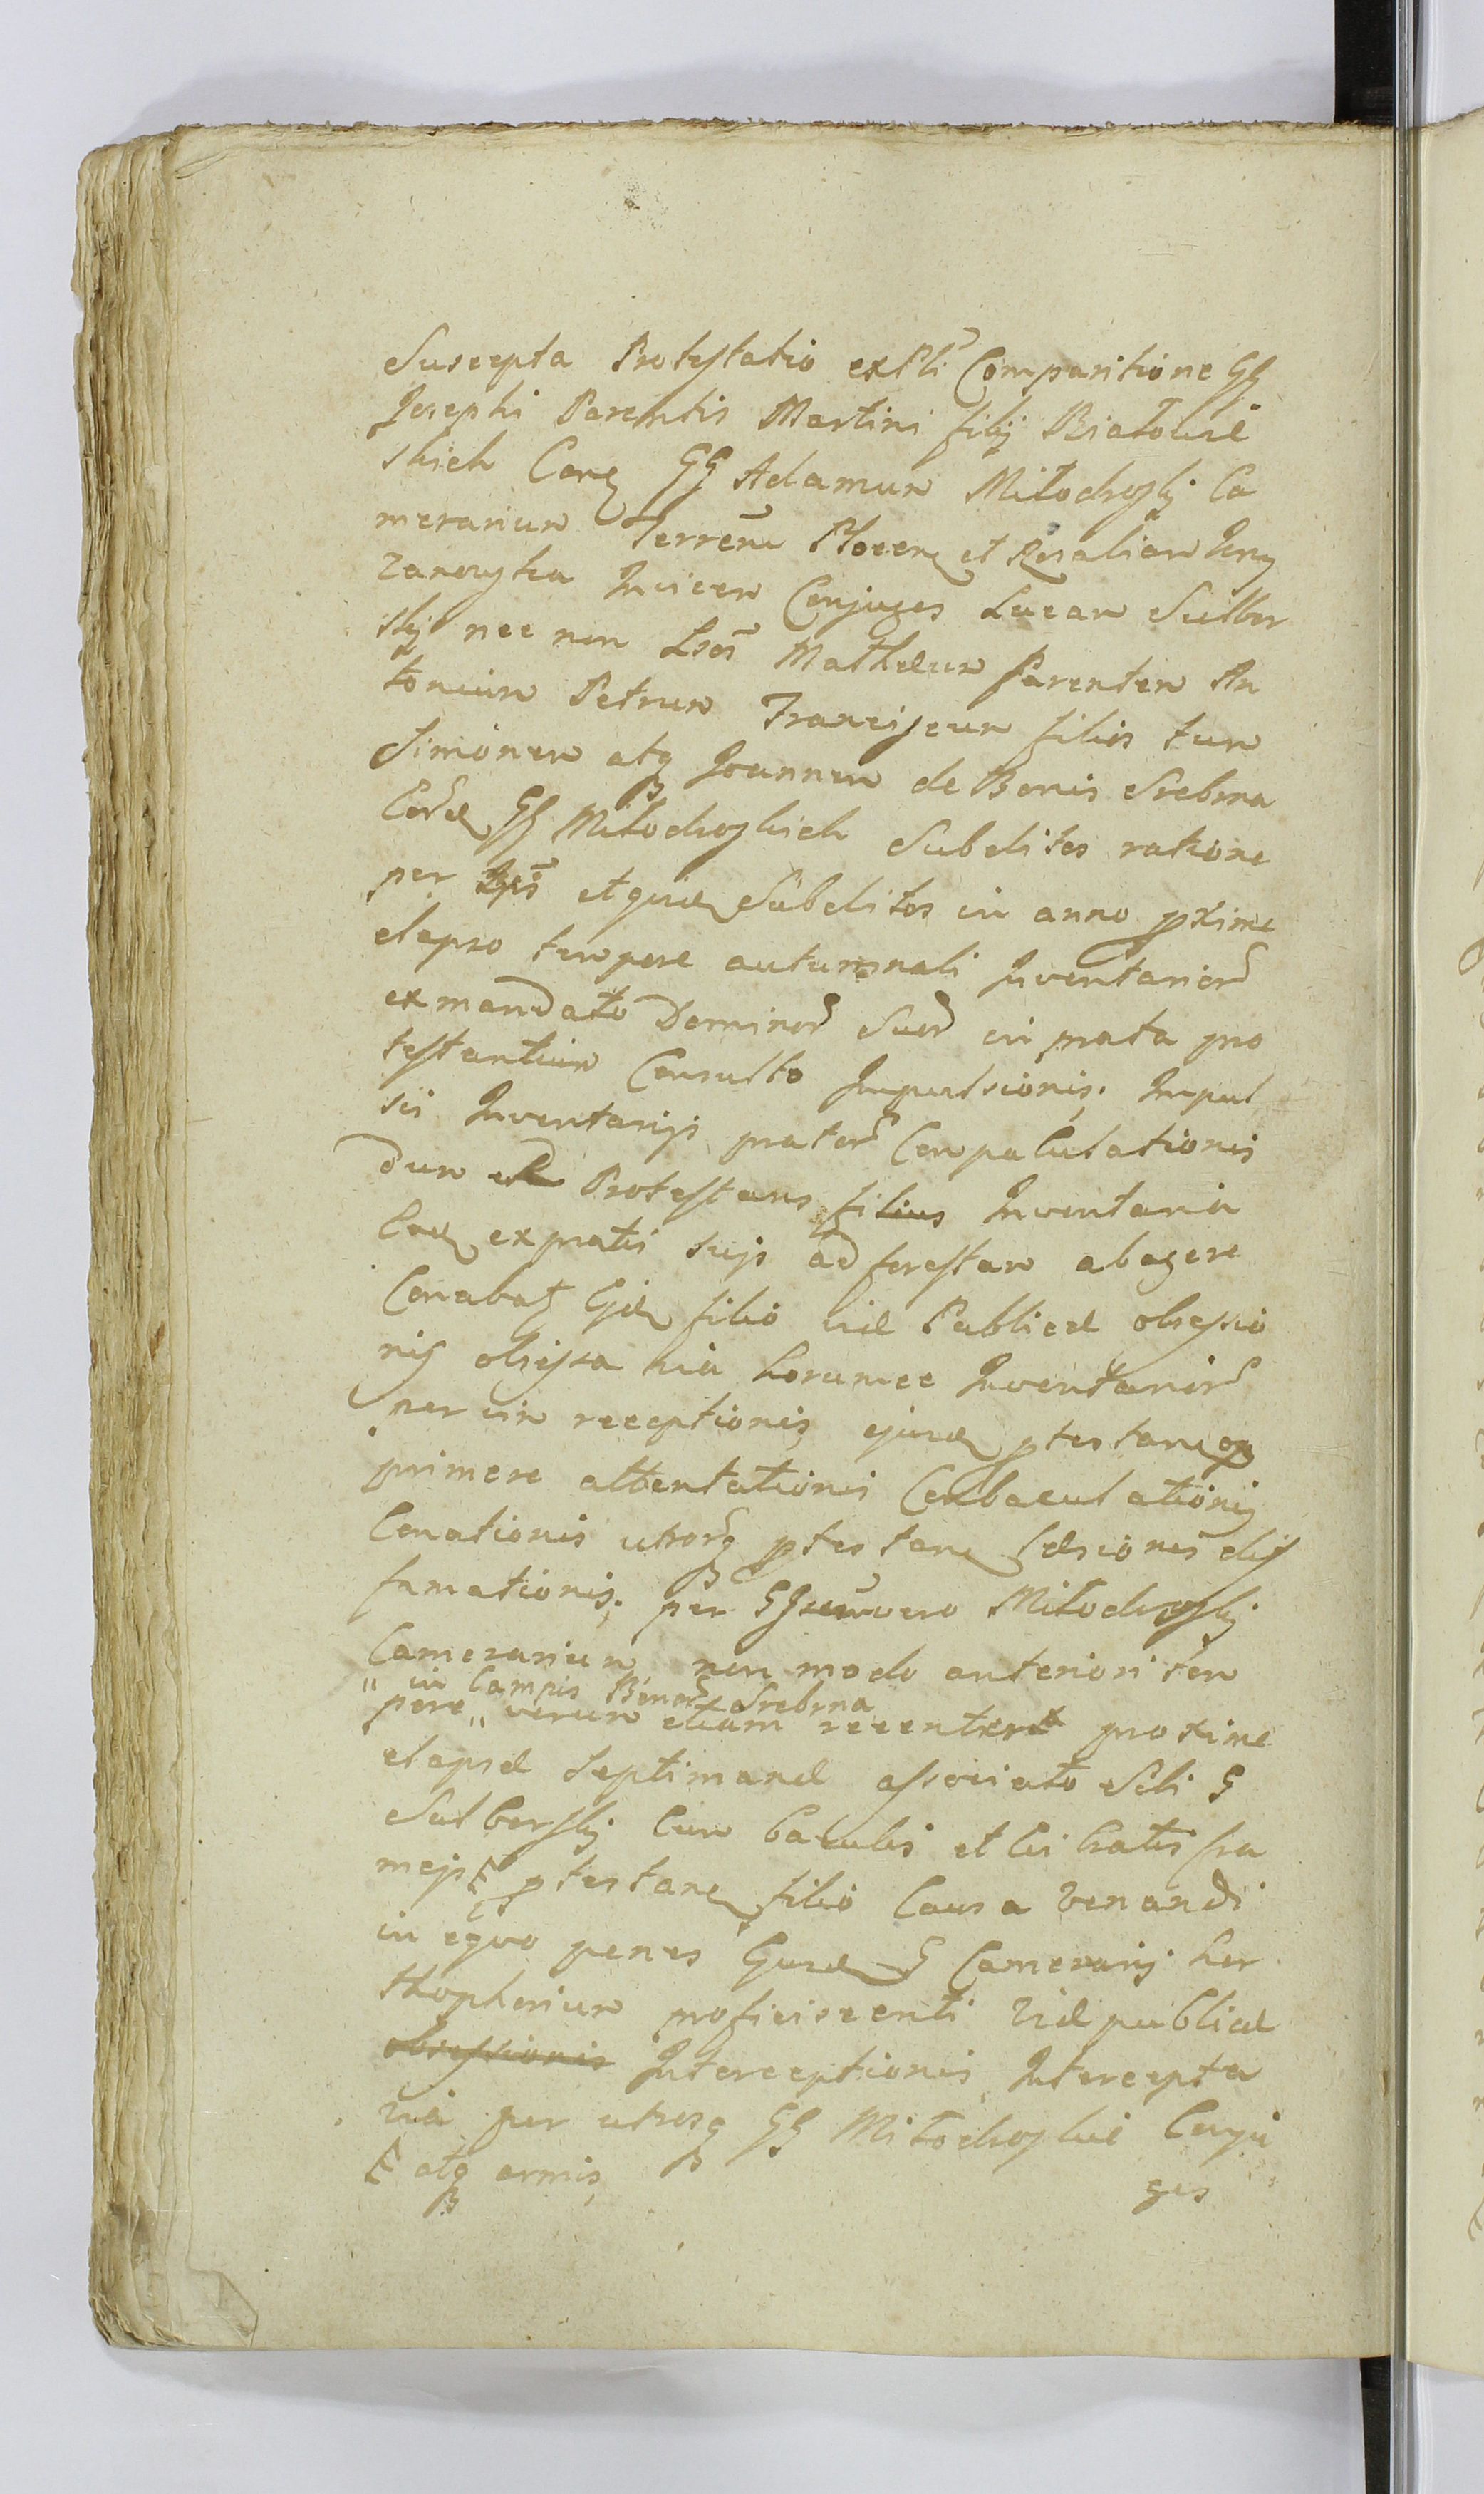 Suscepta Protestatio ex Pli Comparitione GG
Josephi Parentis Martini filij Białowie
skich Cong GG Adamum Miłodroskj Ca
merarium Terrenū Plocen et Rosaliam
zanowska Invicem Conjuges Lucam Sulbor
skj nec non Lsos Mathæum Parentem An
tonium Petrum Franciscum filios tum
Simonem atq Joannem de Bonis Srebrna
Eord GG Miłodroskich Subditos ratione
per Ipōs et quid Subditos in anno pxime
elapso tempore autumnali Inventarior
ex mandato Dominor Suor in prata pro
testantium Consulto Impulsionis, Impul
sis Inventarijs prator Conpalulationis
dum Protestans filius Inventaria
Ead ex pratis suis ad forestam abagere
Conabat Ejd filio viæ Publicæ obsessio
nis obsessa via horumce Inventarior
per vim receptionis, ejusd ptestan op
primere attentationis Conbaculationis
Conationis utrorq ptestan Læsionis dis
famationis, per Gsum vero Miłodroskj
Camerarium non modo anteriori tem
" in Campis Bonor Srebrna
pere " verum etiam recenter proxime
elapsæ Septimanæ associato Sibi G
Sulborskj Cum baculis et fra
meis ptestan filio Causa venandi
in equo penes G Camerarij
proficiscenti viæ publicæ
obsessionis Interceptionis Intercepta
via per utrosq GG Miłodroskie Conju
atq armis,
ges